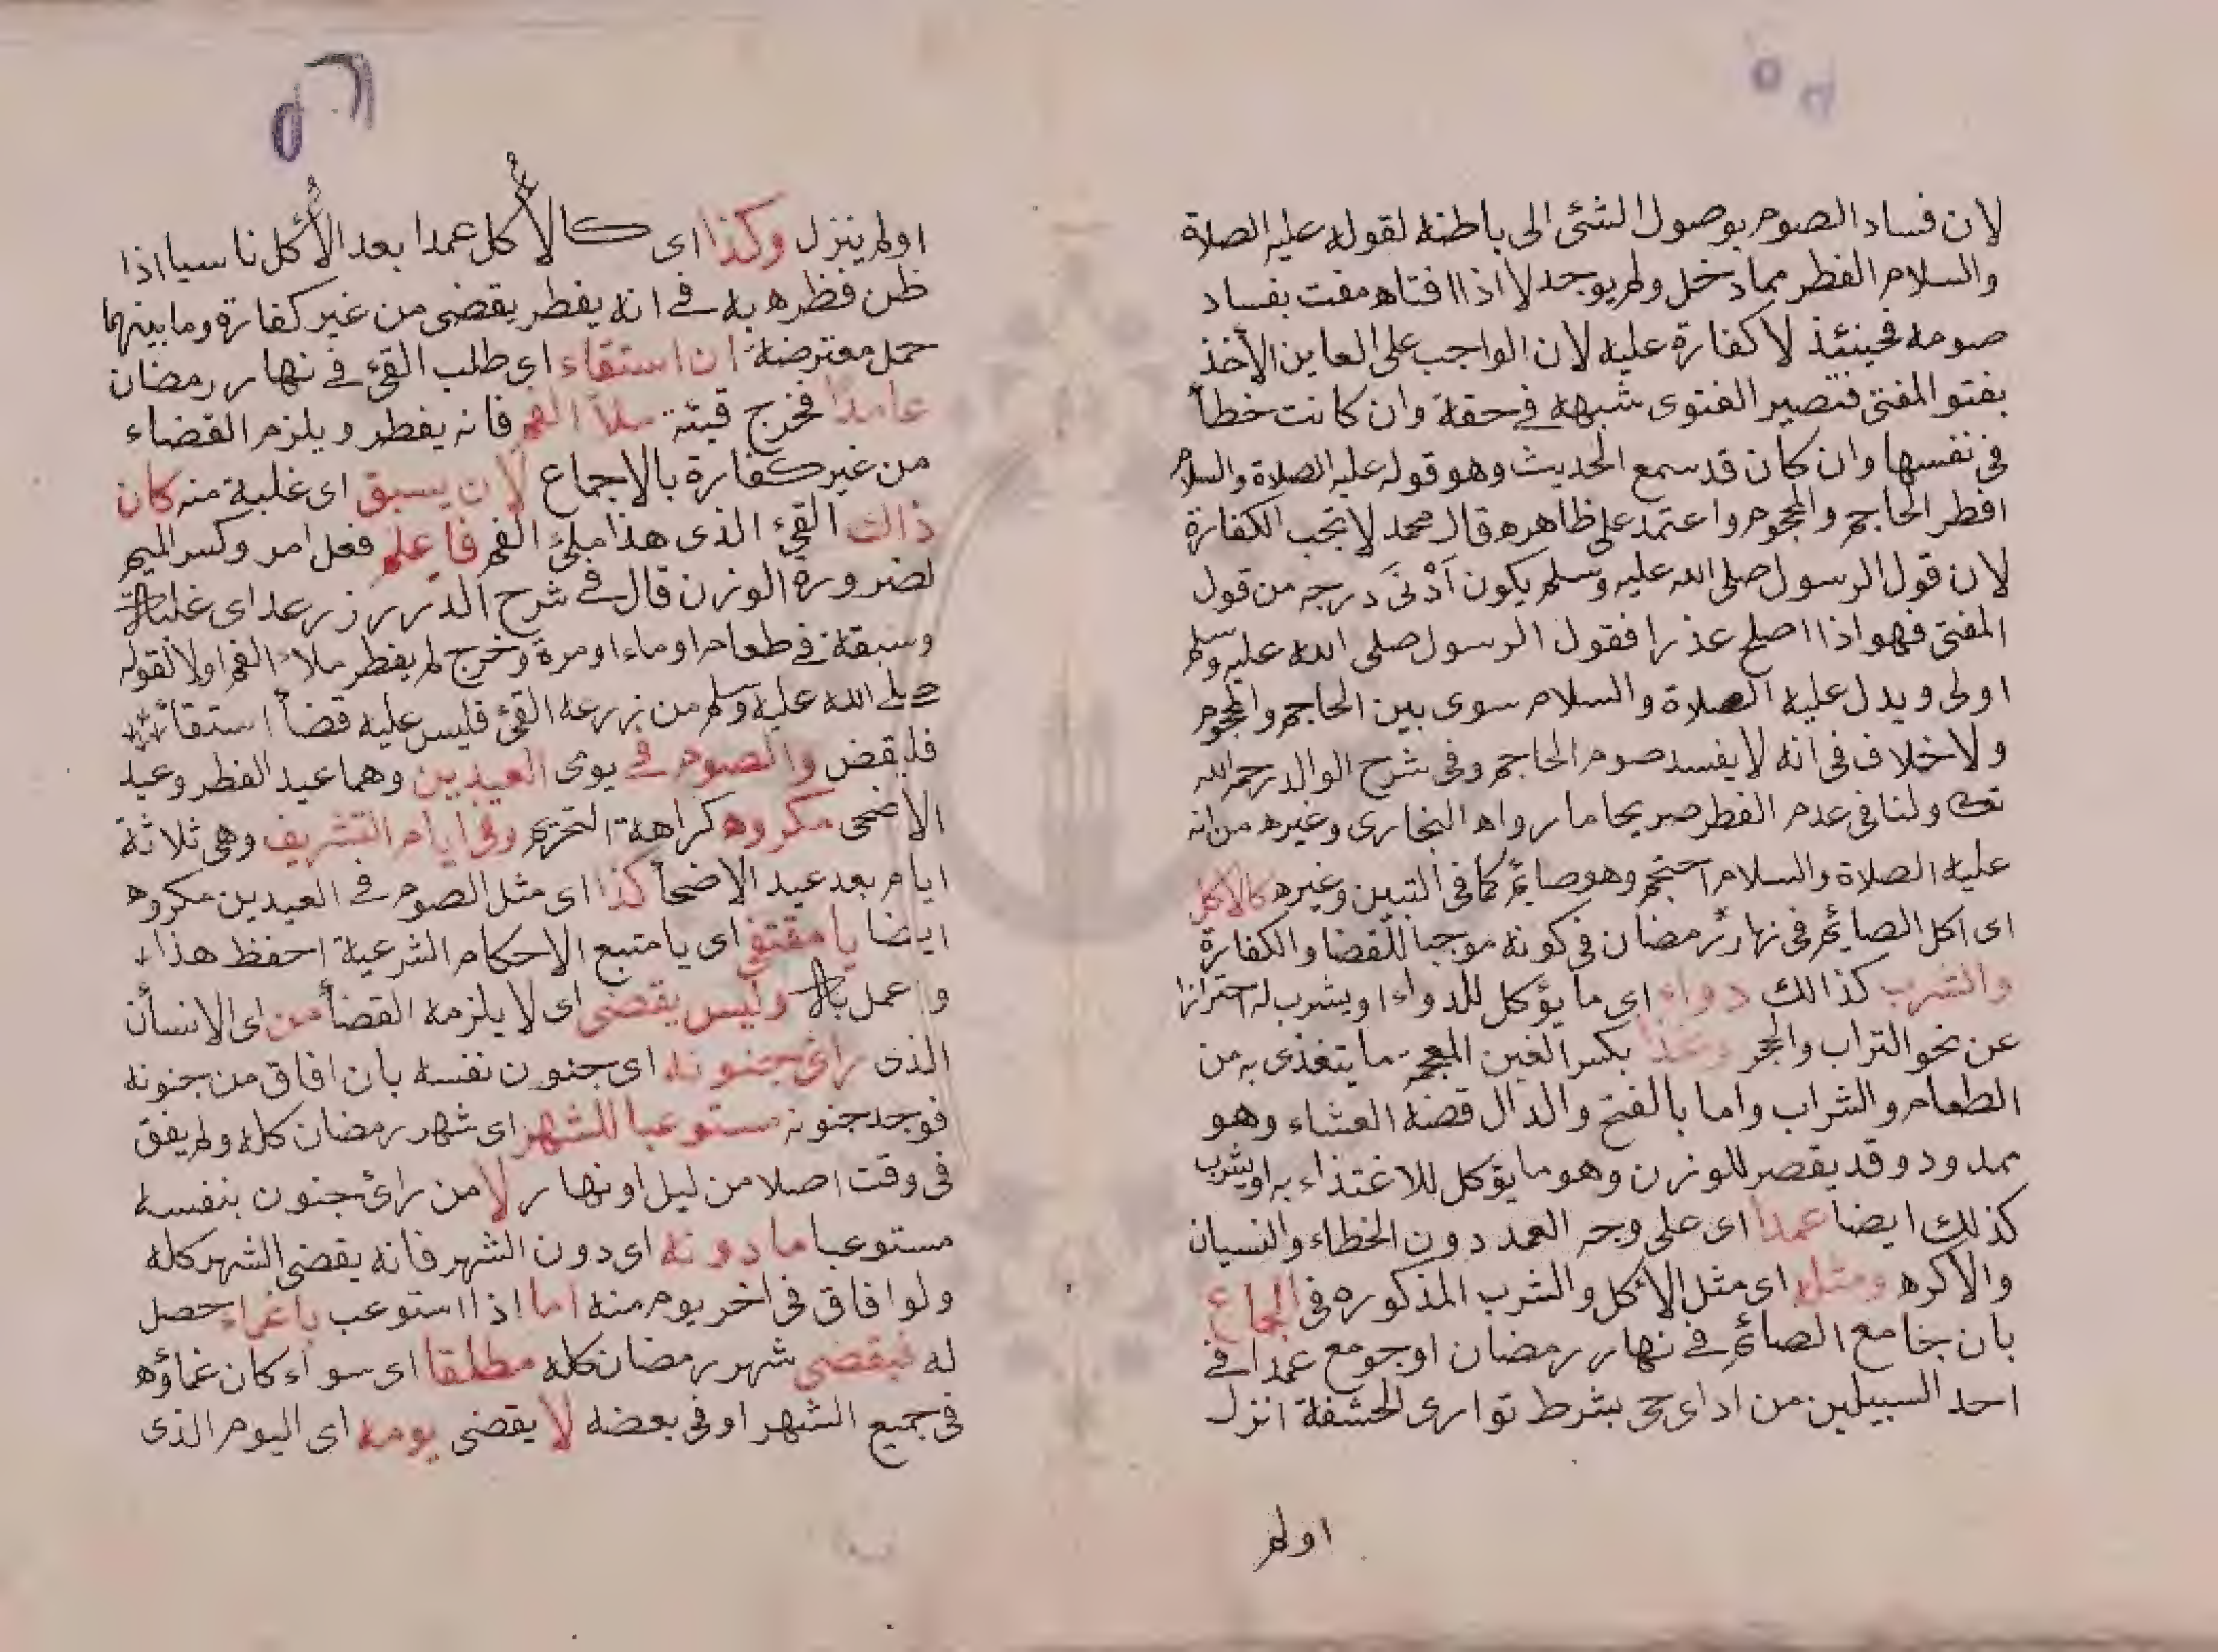 لان فساد الصوم بوصول الشئ الى باطنه لقوله عليه الصلاة
والسلام الفطر مما دخل ولم يوجد لا اذا افتاه مفت بفساد
صومه فحينئذ لا كفارة عليه لان الواجب على العامن الأخذ
بفتو المفتى فتصير الفتوى شبهه فى حقه وان كانت خطأ
فى نفسها وان كان قد سمع الحديث وهو قوله عليه الصلاة والسلام
افطر الحاجم والمحجوم واعتمد على ظاهره قال محمد لا تجب الكفارة
لان قول الرسول صلى الله عليه وسلم يكون أَدْنَى درجه من قول
المفتى فهو اذا اصلح عذرا فقول الرسول صلى الله عليه وسلم
اولى ويدل عليه الصلاة والسلام سوى بين الحاجم والمحجوم
ولا خلاف فى انه لا يفسد صوم الحاجم وفى شرح الوالد رحمه الله
تك ولنا فى عدم الفطر صريحا ما رواه البخارى وغيره من انه
عليه الصلاة والسلام احتجم وهو صايم كما فى التبين وغيره كالاكل
اى اكل الصايم فى نهار رمضان فى كونه موجبا للقضا والكفارة
والشرب كذالك دواء اى ما يؤكل للدواء او يشرب له احترازا
عن نحو التراب والحجر وغذا بكسر الغين المعجمة ما يتغذى به من
الطعام والشراب واما بالفتح والدال قضه العشاء وهو
ممدود وقد يقصر للوزن وهو ما يؤكل للاغتذاء به او يشرب
كذلك ايضا عمدا اى على وجه العمد دون الخطاء والنسيان
والاكره ومثله اى مثل الأكل والشرب المذكوره فى الجماع
بان يجامع الصائم فى نهار رمضان او جومع عمدا فى
احد السبيلين من ادمى حى بشرط توارى الحشفة انزل
اولم
اولم ينزل وكذا اى كالأكل عمدا بعد الأكل ناسيا اذا
ظن فطره به فى انه يفطر يقضى من غير كفارة وما بينهما
جمل معترضة ان استقاء اى طلب القئ فى نهار رمضان
عامدا فخرج قيئه ملأ الفم فانه يفطر ويلزم القضاء
من غير كفارة بالاجماع لا ان يسبق اى غلبة منه كان
ذالك القئ الذى هذا ملئ الفم فاعلم فعل امر وكسر الميم
لضرورة الوزن قال فى شرح الدرر زرعه اى غلبه
وسبقه فى طعام او ماء او مرة وخرج لم يفطر ملاء الفم اولا لقوله
صلى الله عليه وسلم من زرعه القئ فليس عليه قضأ استقاء
فليقض والصوم فى يومى العيدين وهما عيد الفطر وعيد
الاضحى مكروه كراهة التحريم وفى ايام التشريف وهى ثلاثة
ايام بعد عيد الاضحأ كذا اى مثل الصوم فى العيدين مكروه
ايضا يا مقتفى اى يا متبع الاحكام الشرعية احفظ هذا
واعمل به وليس يقضى اى لا يلزمه القضأ من اى الانسأن
الذى رأى جنونه اى جنون نفسه بان افاق من جنونه
فوجد جنونه مستوعبا للشهر اى شهر رمضان كله ولم يفق
فى وقت اصلا من ليل او نهار لا من رائ جنون بنفسه
مستوعبا ما دونه اى دون الشهر فانه يقضى الشهر كله
ولو افاق فى اخر يوم منه اما اذا استوعب باغماء حصل
له فيقضى شهر رمضان كله مطلقا اى سواء كان غماؤه
فى جميع الشهر او فى بعضه لا يقضى يومه اى اليوم الذى